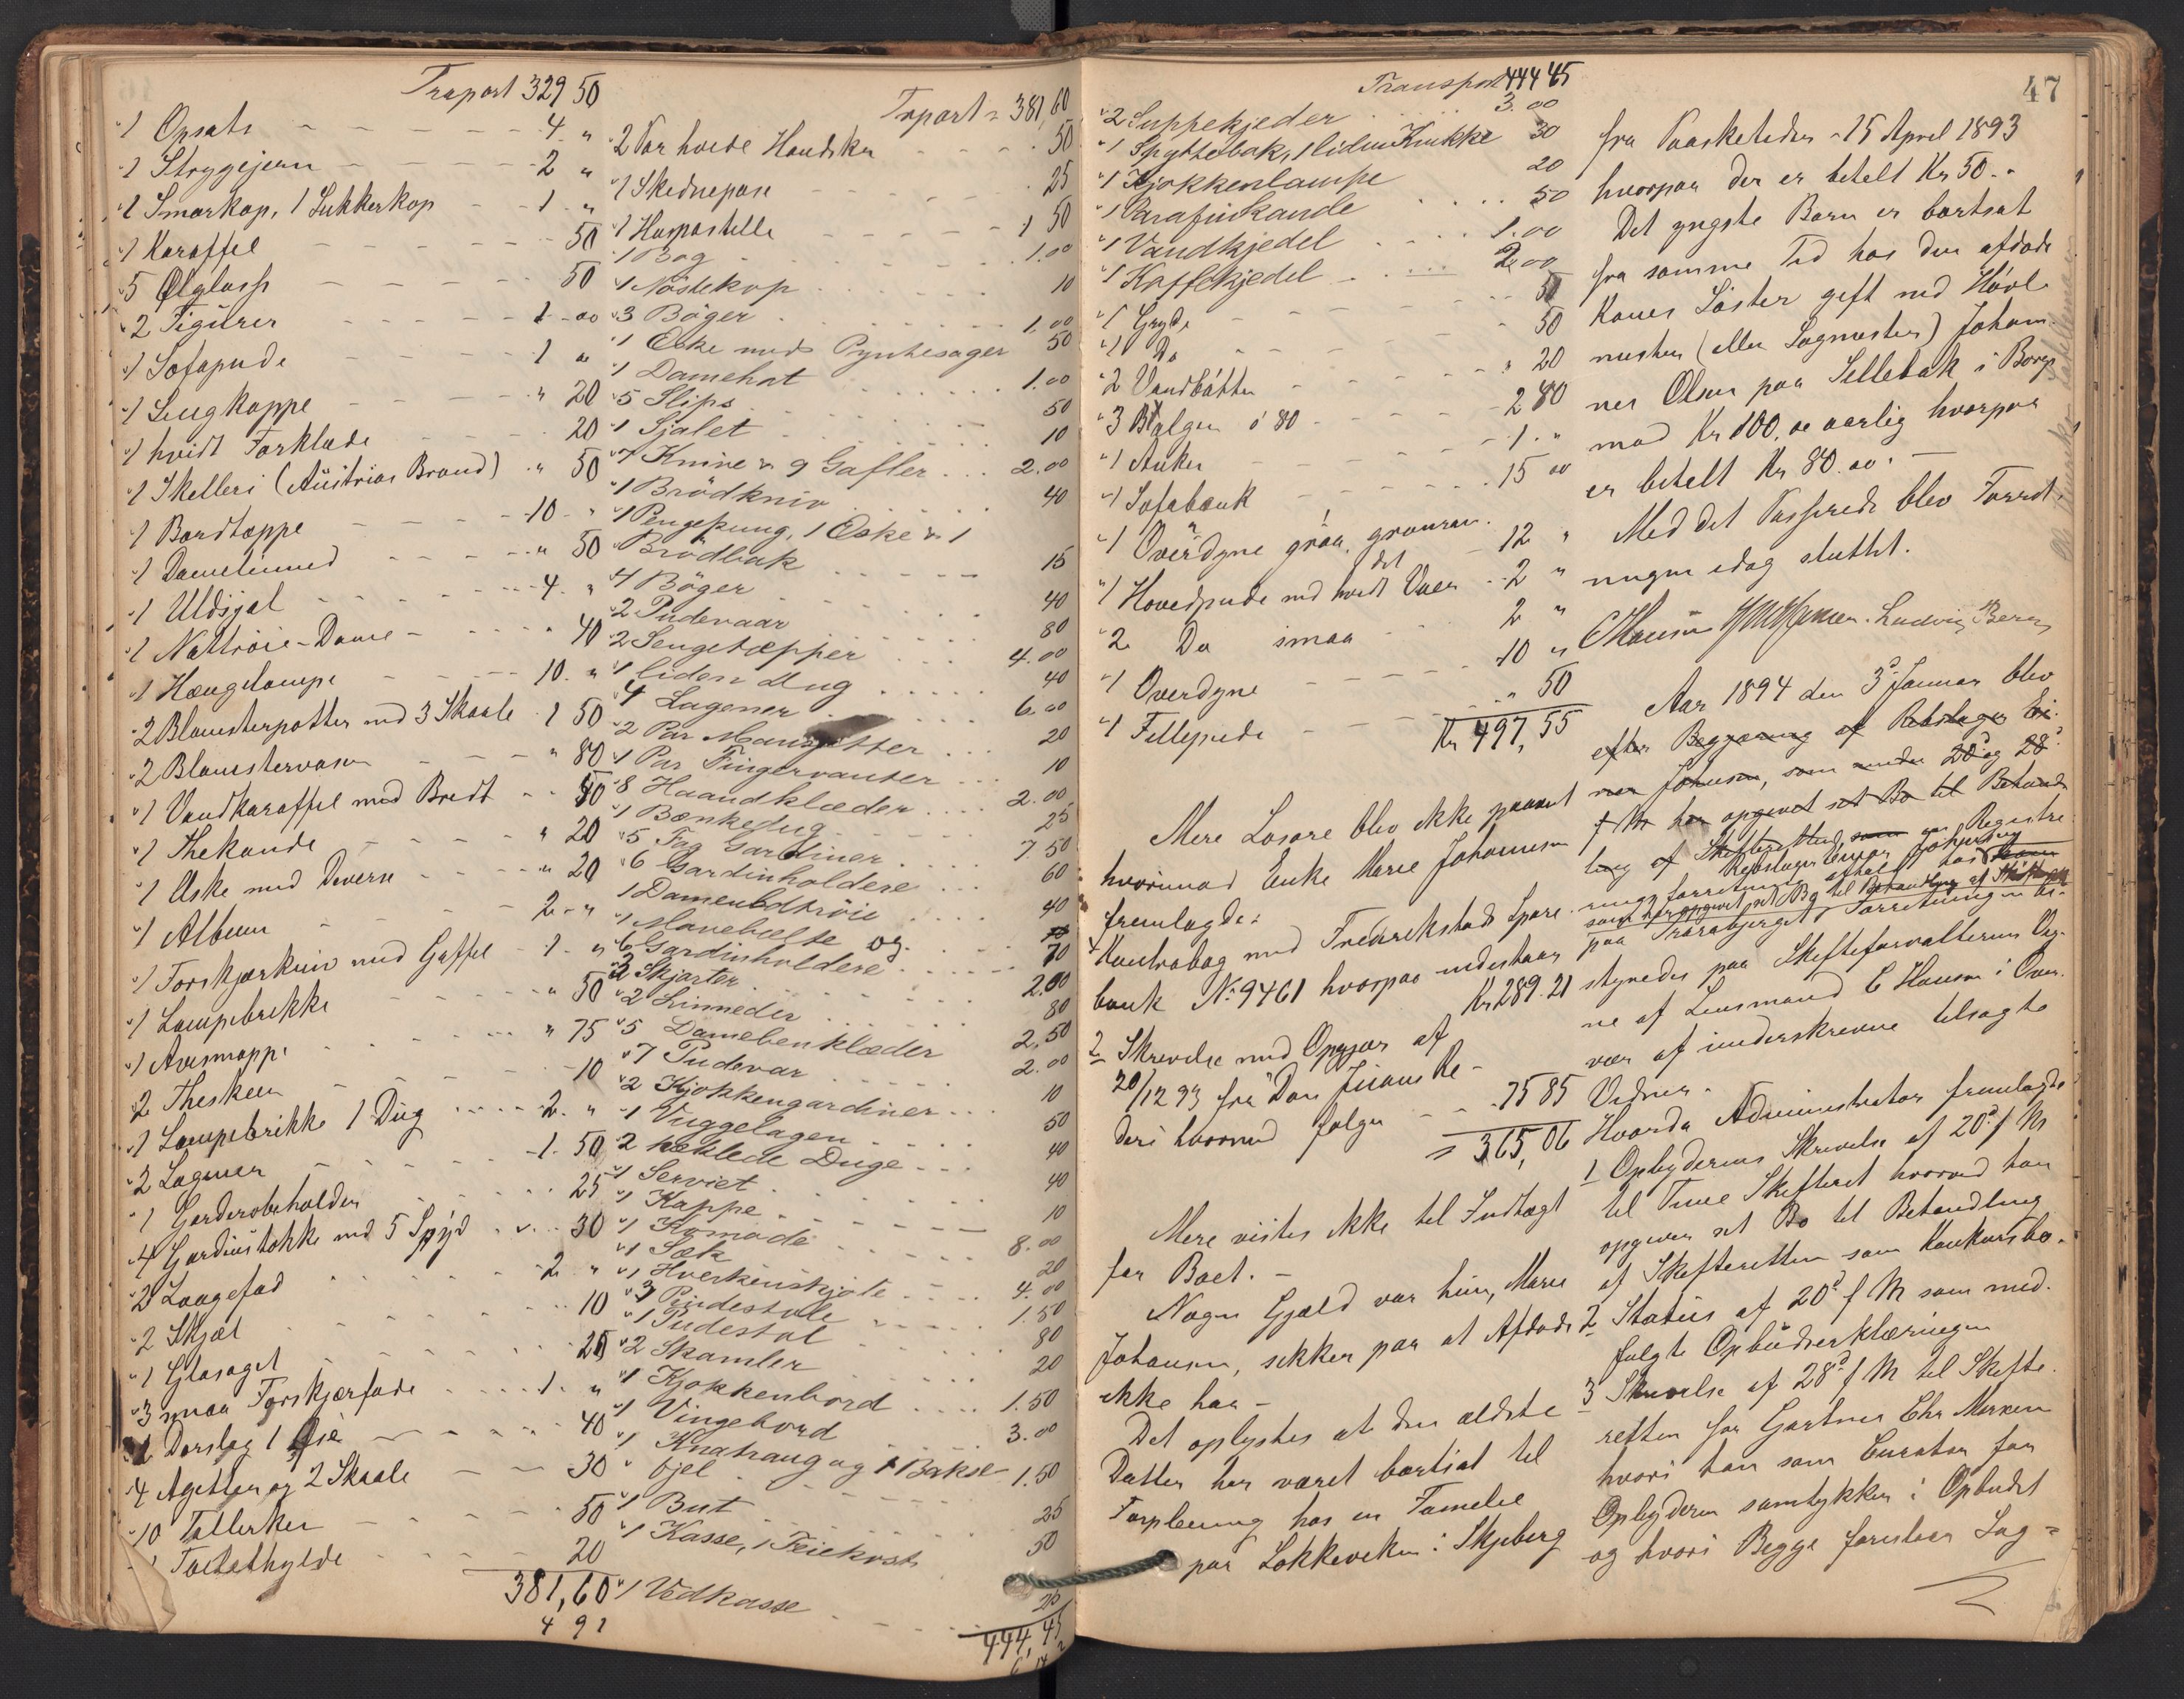 Trsport 329 50
1 Opsats 4. "
1 Strygejern 2 "
1 Smørkop, 1 Sukkerkop 1 "
1 Karaffel 50
5 Ølglass 50
2 Figürer 1-00
1 Sofapude 1 "
1 Sengkappe " 20
1 hvidt Forklæde 20
1 Skilleri (Aüstrias Brand) " 50
1 Bordtæppe 10. "
1 Damelinned " 50
1 Uldsjal 4. "
1 Nattröie-Dame - " 40
1 Hængelampe 10. "
2 Blomsterpotter med 3 Skaale 1 50
2 Blomstervaser " 80
1 Vandkaraffel med Bredt 40
1 Thekande " 20
1 Æske med Diverse " 20
1 Album 2- "
1 Forskjærkniv med Gaffel 1. "
1 Lampebrikke " 50
1 Avismappe " 75
2 Theskeer 10
1 Lampebrikke 1 Düg 2. "
2 Lagener 1. 50
1 Garderobeholder 25
4 Gardinstokke med 5 Spyd 30
2 Laagefad 2 "
2 Skjæl 10
1 Glasaget 25
3 smaa Forskjærfade 1. "
1 Dørslag 1 Øse 40
4 Agetter og 2 Skaale 30
10 Tallerker 50
1 Toilethylde 20
381,60
4 91
Trsport = 381,60
2 Par hvide Handsker 50
1 Skednepose 25
1 Huspostille 1 50
1 Bog 1.00
1 Nöstekop 10
3 Böger 1.00
1 Eske med Pyntesager 50
1 Damehat 1.00
5 Slips 50
1 Sjalet 10
7 Knive & 9 Gafler 2.00
1 Brödkniv 40
1 Pengepung, 1 Eske & 1
Brödbak 15
4 Böger 40
2 Pudevaar 80
2 Sengetæpper 4.00
1 liden Dug 40
4 Lagener 6.00
2 Par Mansjetter 20
1 Par Fingervanter 10
8 Haandklæder 2.00
1 Bænkedug 25
5 Fag Gardiner 7 50
6 Gardinholdere 60
1 Dameuldtröie 40
1 Mavebælte og
6 Gardinholdere 70
2 Skjorter 2.00
2 Linneder 80
5 Damebenklæder 2,50
7 Pudevar 2.00
2 Kjøkkengardiner 10
1 Vuggelagen 50
2 hæklede Duge 40
1 Serviet 40
1 Kappe 10
1 Komode 8.00
1 Sæk 20
1 Hverkenskjole 4.00
3 Pindestole 1.50
1 Pudestol 80
2 Skamler 20
1 Kjøkkenbord 1.50
1 Vingebord 3.00
1 Knatraug og 1 Bakse
fjel 1.50
1 But 25
1 Kasse, 1 Feiekost 50
1 Vedkasse 25
444,45
47
Transport 444 45
2 Suppekjeder 3.00
1 Spyttebak, 1 liden Krukke 30
1 Kjøkkenlampe 20
1 Parafinkande 50
1 Vandkjedel 1.00
1 Kaffekjedel 2.00
1 Gryde 50
1 Do 50
2 Vandbøtter " 20
3 Balger á 80 2 80
1 Anker 1. "
1 Sofabænk 15 00
1 Overdyne graa, graaran.
det 12 "
1 Hovedpude med hvidt Vaar 2 "
2 Do smaa 2 "
1 Overdyne 10 "
1 Fillepude " 50
Kr 497,55
Mere Løsøre blev ikke paavist
hvorimod Enke Marie Johannesen
fremlagde:
1 Kontrabog med Fredrikstads Spare-
bank No 9461 hvorpaa indestaar
Kr 289.21
2 Skrivelse med Opgjør af
20/12 93 fra Don Juans Re-
deri hvorved følger 75 85
= 365,06
Mere vistes ikke til Indtægt
for Boet. -
Nogen Gjæld var hun, Marie
Johansen, sikker paa at Afdøde
ikke har -
Det oplystes at den ældste
Datter har været bortsat til
Forpleining hos en Familie
paa Løkkeveken i Skjeberg
fra Paasketider - 15 April 1893
hvorpaa der er betalt Kr 50. -
Det yngste Barn er bortsat
fra samme Tid hos den afdøde
Kones Søster gift med Høvl-
mester (eller Sagmester) Johan-
nes Olsen paa Sellebak i Borge
mod Kr 100,00 aarlig hvorpaa
er betalt Kr 80.00. -
Med det Passerede blev Forret-
ningen idag sluttet.
CHansen Ludvig Berg
Aar 1894 den 3d Januar blev
efter Begjæring af Rebslager Ei-
nar Johnsen, som under 20d og 28d
f M har opgivet sit Bo til Behand-
ling af Skifteretten, en Registre-
ringsforretning afholdt hos
Rebslager Einar Johnsen
som har opgivet sit Bo til Behandling af Skifteretten
paa Trosrabjerget. Forretningen be-
styredes paa Skifteforvalterens Veg-
ne af Lensmand C Hansen i Over-
vær af underskrevne tilsagte
Vidner.
Hvorda Administrator fremlagde
1 Opbyderens Skrivelse af 20d f M
til Tune Skifteret hvorved han
opgiver sit Bo til Behandling
af Skifteretten som Konkursbo.
2 Status af 20d f M som med-
fulgte Opbudserklæringen
3 Skrivelse af 28d f M til Skifte-
retten fra Gartner Chr Monsen
hvori han som Curator for
Opbyderen samtykker i Opbudet
og hvori Begge foreslaar Sag=